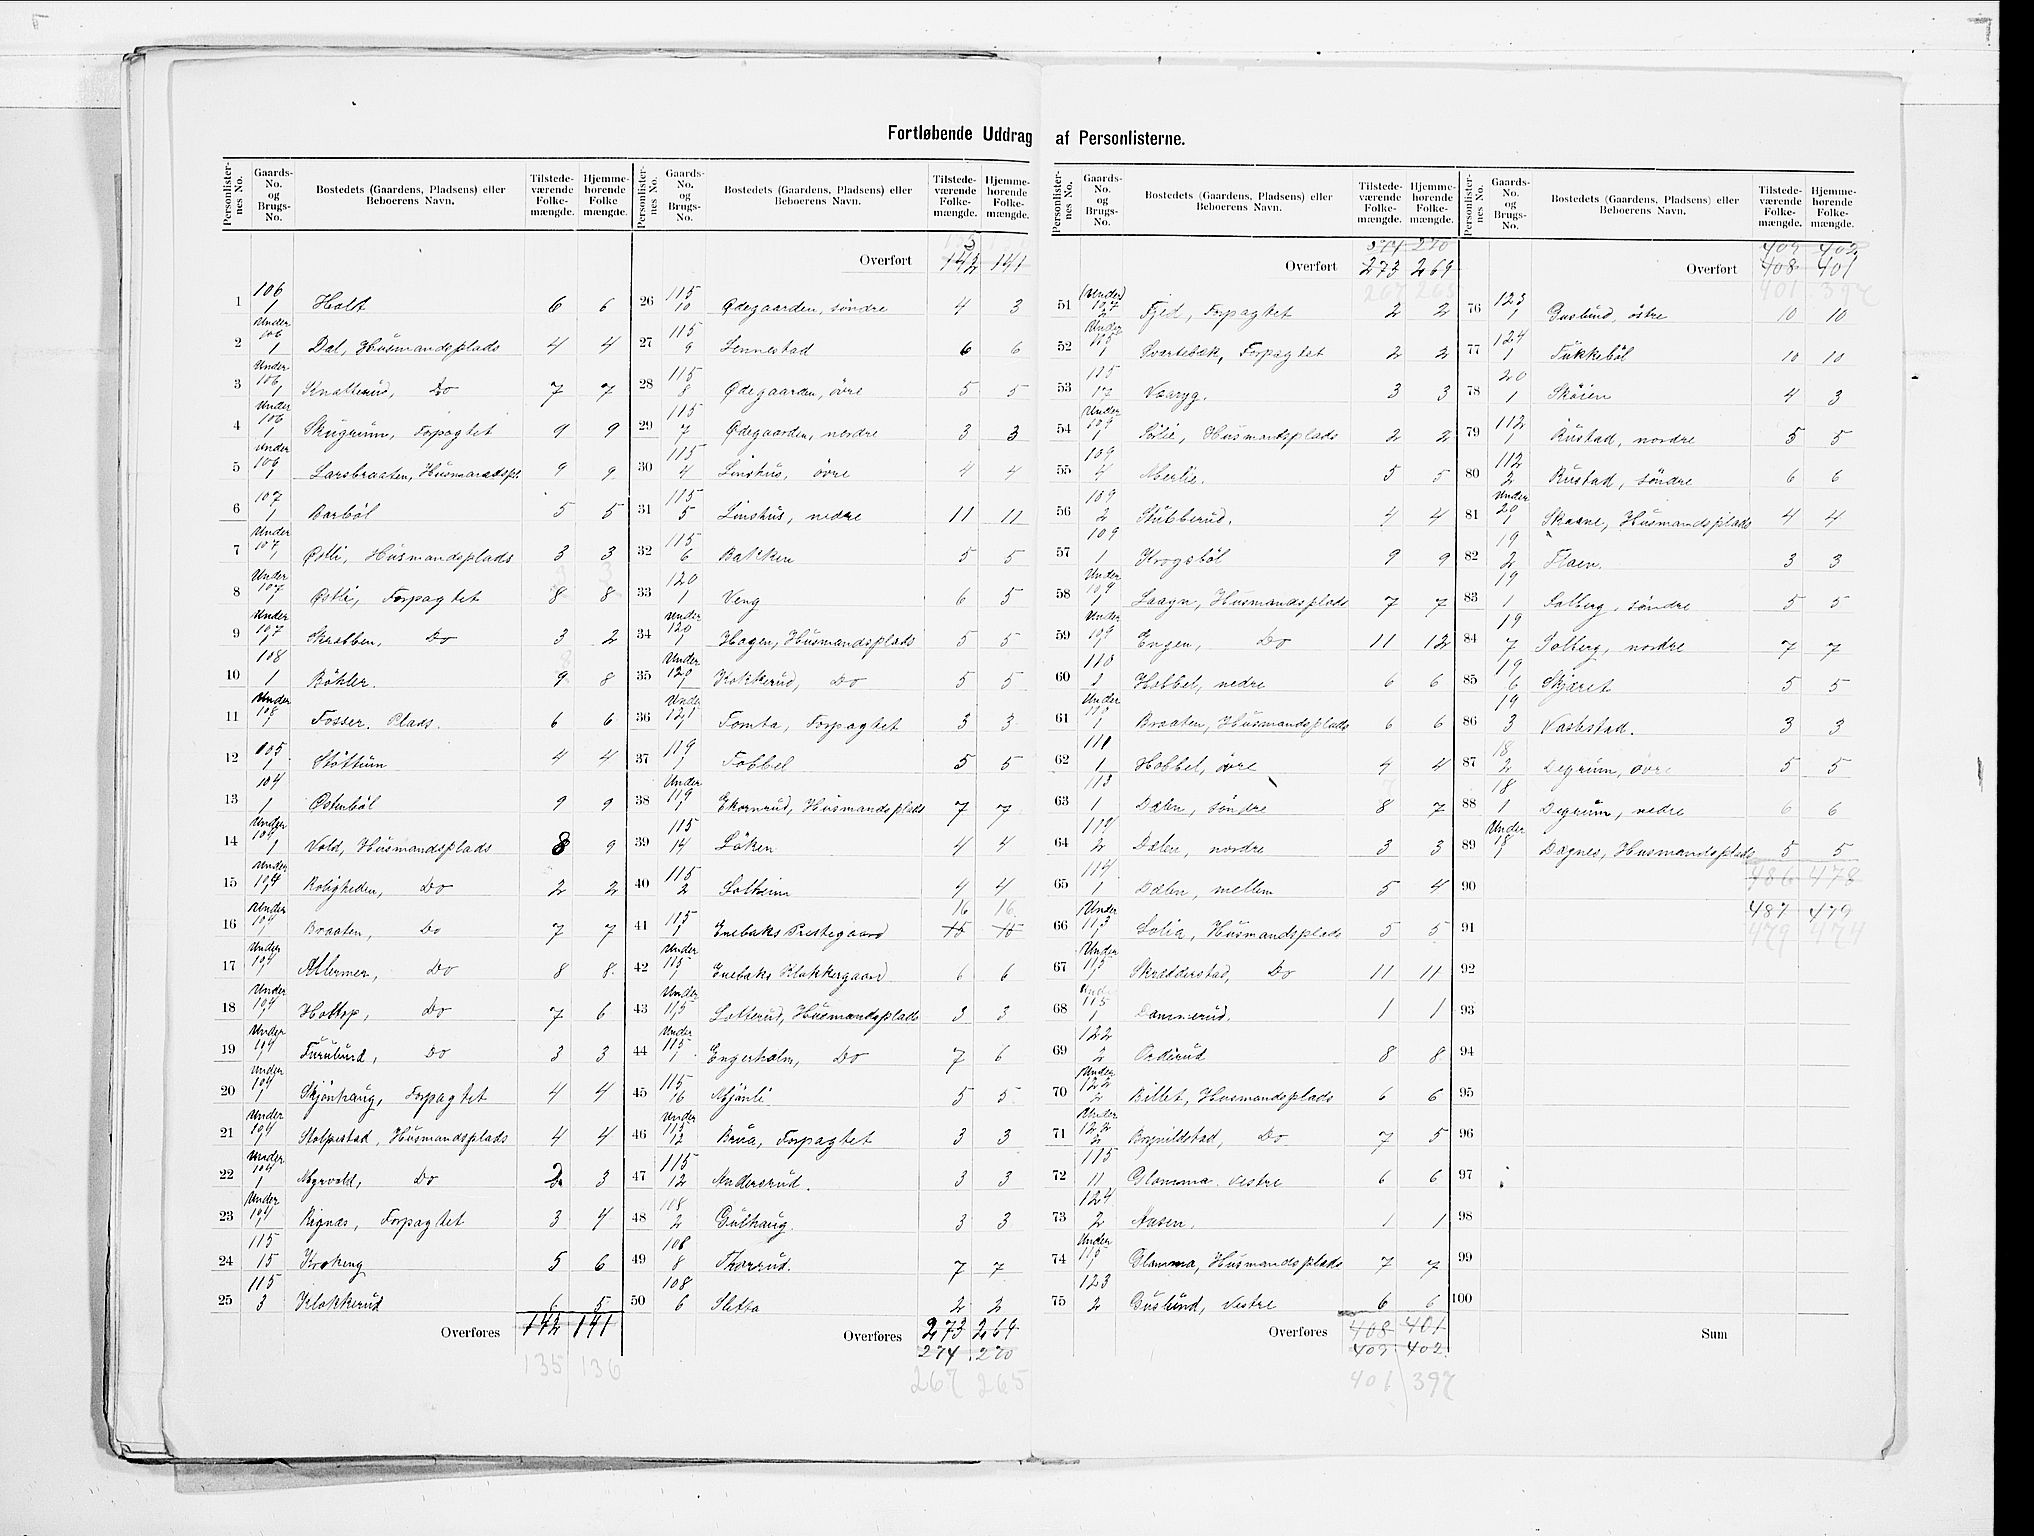 Fortløbende Uddrag af Personlisterne.
Personlisternes No. Gaards-No. og Brugs-No. Bostedets (Gaardens, Pladsens) eller Beboerens Navn. Tilstedeværende Folkemængde. Hjemmehørende Folkemængde.
Overført 142 141
1 106 1 Holt 6 6
2 Under 106 1 Dal, Husmandsplads 4 4
3 Under 106 1 Knatterud, Do 7 7
4 Under 106 1 Skugrum, Forpagtet 9 9
5 Under 106 1 Larsbraaten, Husmandspl. 9 9
6 107 1 Barbøl 5 5
7 Under 107 1 Østli, Husmandsplads 3 3
8 Under 107 1 Østli, Forpagtet 8 8
9 Under 107 1 Skrabben, Do 3 2
10 108 1 Bøhler. 9 8
11 Under 108 1 Fosser. Plads. 6 6
12 105 1 Støttum 4 4
13 104 1 Østenbøl 9 9
14 Under 104 1 Vold, Husmandsplads 8 9
15 Under 104 1 Roligheden, Do 2 2
16 Under 104 1 Braaten, Do 7 7
17 Under 104 1 Do 8 8
18 Under 104 1 Holtop, Do 7 6
19 Under 104 1 Furulund, Do 3 3
20 Under 104 1 Skjønhaug, Forpagtet 4 4
21 Under 104 1 Stolpestad, Husmandsplads 4 4
22 Under 104 1 Myrvold, Do 2 3
23 Under 104 1 Rignas, Forpagtet 3 4
24 115 15 Krokeng 5 6
25 115 3 Klokkerud 6 5
Overføres 142 141
135 136
26 115 10 Ødegaarden, søndre 4 3
27 115 9 Lennestad 6 6
28 115 8 Ødegaarden, øvre 5 5
29 115 7 Ødegaarden, nordre 3 3
30 115 4 Linshus, øvre 4 4
31 115 5 Linshus, nedre 11 11
32 115 6 Bakken 5 5
33 120 1 Veng 6 5
34 Under 120 1 Hagen, Husmandsplads 5 5
35 Under 120 1 Kokkerud, Do 5 5
36 Under 121 1 Tomta, Forpagtet 3 3
37 119 1 Tobbel 5 5
38 Under 119 1 Ekornrud, Husmandsplads 7 7
39 115 14 Løken 4 4
40 115 2 Solheim 4 4
16 16
41 115 1 Enebaks Prestegaard 15 15
42 Under 115 1 Enebaks Klokkergaard 6 6
43 Under 115 1 Lotterud, Husmandsplads 3 3
44 Under 115 1 Engerholm, Do 7 6
45 115 16 Mjønli 5 5
46 Under 115 12 Brua, Forpagtet 3 3
47 115 12 Andersrud. 3 3
48 118 2 Gulhaug 3 3
49 108 8 Thorrud. 7 7
50 108 6 Sletta 2 2
Overføres 273 269
274 270
267 265
274 270
Overført 273 269
267 265
51 (Under) 107 2 Fjeld, Forpagtet 2 2
52 Under 105 1 Svartebæk, Forpagtet 2 2
53 115 17 Væaryg. 3 3
54 Under 109 1 Sølie, Husmandsplads 2 2
55 109 4 Aberlie. 5 5
56 109 2 Stubberud. 4 4
57 109 1 Krogsbøl 9 9
58 Under 109 1 Laagn, Husmandsplads 7 7
59 Under 109 1 Engen, Do 11 12
60 110 1 Hobbel, nedre 6 6
61 Under 110 1 Braaten, Husmandsplads 6 6
62 111 1 Hobbel, øvre 4 4
63 113 1 Dælen, søndre 8 7
64 114 2 Dælen, nordre 3 3
65 114 1 Dælen, mellem 5 4
66 Under 113 1 Lolia, Husmandsplads 5 5
67 Under 113 1 Skrædderstad, Do 11 11
68 Under 115 1 Dammerud. 1 1
69 122 2 Orderud 8 8
70 Under 122 2 Billet, Husmandsplads 6 6
71 Under 122 2 Brynildstad, Do 7 5
72 115 11 Glamma. Vestre 6 6
73 124 2 Aasen. 1 1
74 Under 115 1 Glamma, Husmandsplads 7 7
75 123 2 Guslund, Vestre 6 6
Overføres 408 401
409 402
401 397
409 402
Overført 408 401
401 397
76 123 1 Guslund, østre 10 10
77 124 1 Tukkebøl 10 10
78 20 1 Skøien 4 3
79 112 1 Rustad, nordre 5 5
80 112 2 Rustad, søndre 6 6
81 Under 20 1 Skaane, Husmandsplads 4 4
82 19 2 Flaen. 3 3
83 19 1 Solberg, søndre 5 5
84 19 7 Solberg, nordre 7 7
85 19 6 Skjæret 5 5
86 19 3 Vasbstad. 3 3
87 18 2 Degrum, øvre 5 5
88 18 1 Degrum, nedre 6 6
89 Under 18 1 Dægnes, Husmandsplads 5 5
90 486 478
487 479
91 479 474
92
93
94
95
96
97
98
99
100
Sum